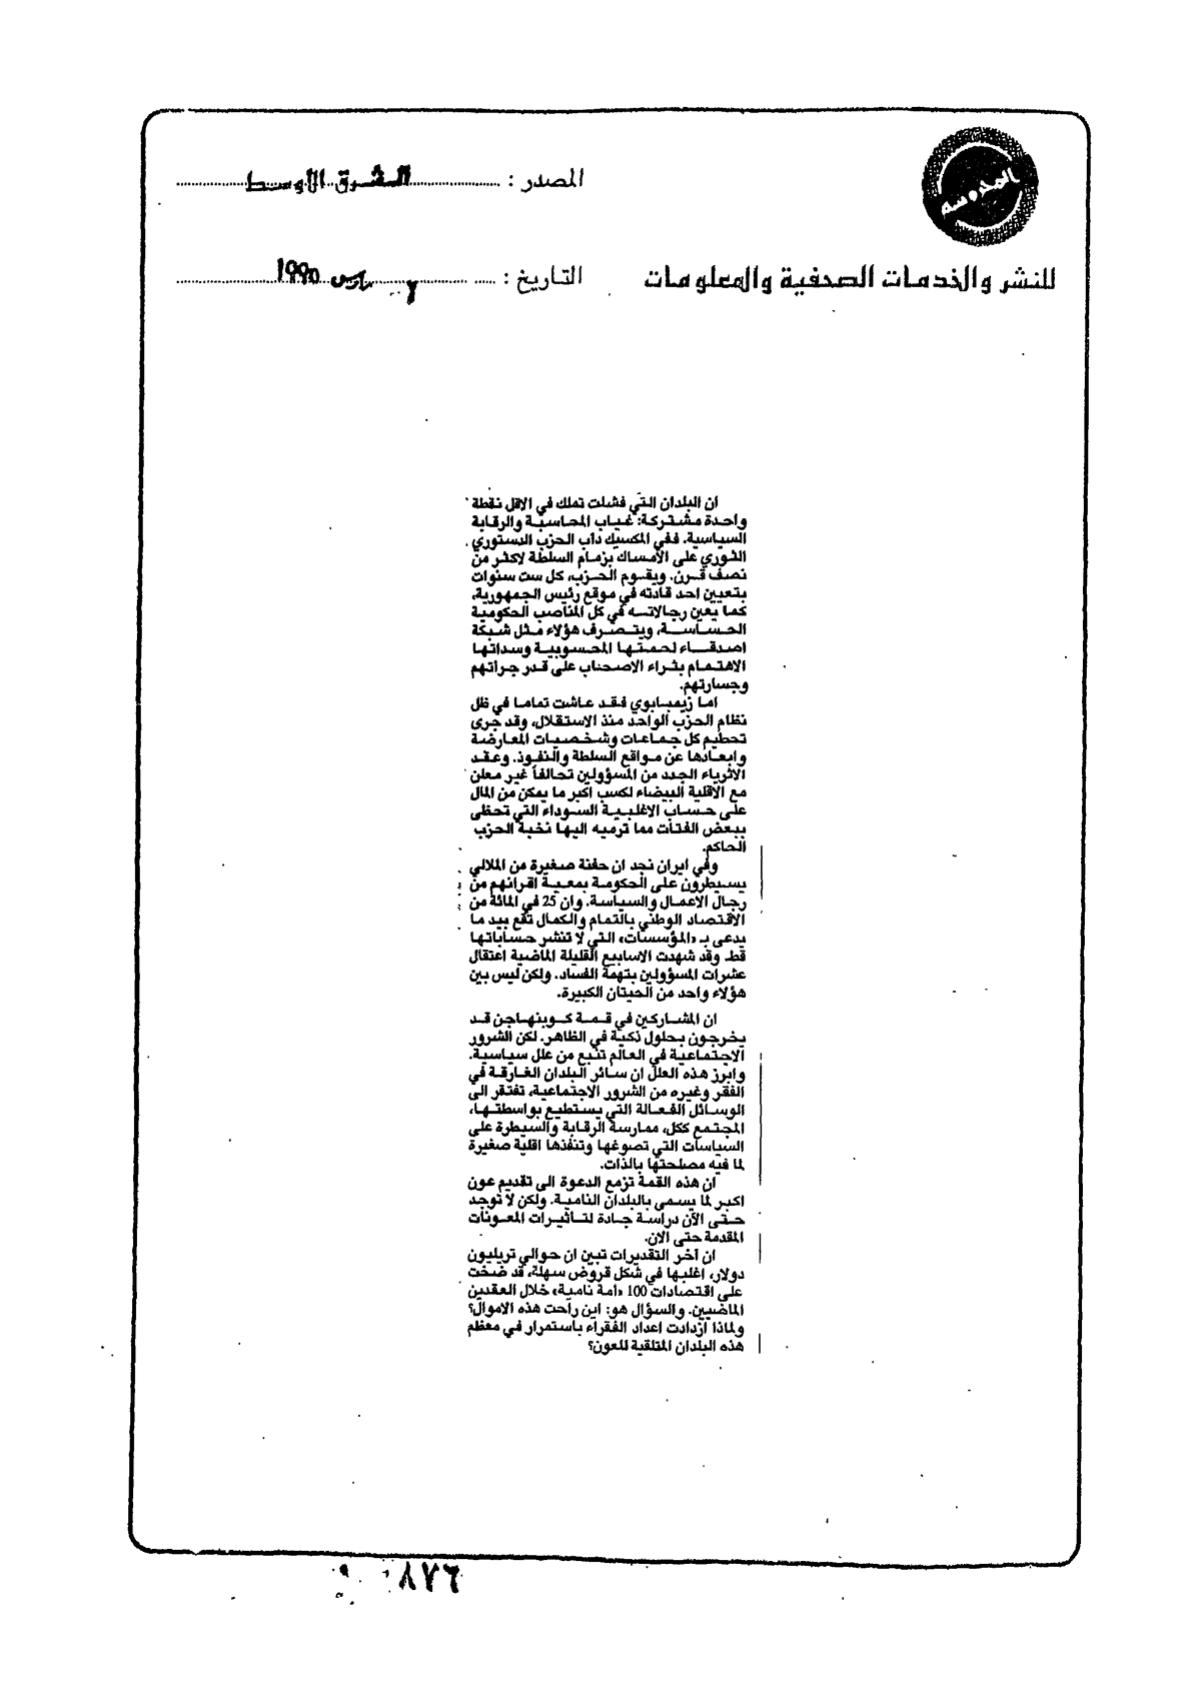 المحروسة
المصدر : الشرق الأوسط
للنشر والخدمات الصحفية والمعلومات
التاريخ : مارس ١٩٩٥
ان البلدان التي فشلت تملك في الاقل نقطة
واحدة مشتركة: غياب المحاسبة والرقابة
السياسية. ففي المكسيك داب الحزب الدستوري
الثوري على الامساك بزمام السلطة لاكثر من
نصف قرن. ويقوم الحزب، كل ست سنوات
بتعيين احد قادته في موقع رئيس الجمهورية،
كما يعين رجالاته في كل المناصب الحكومية
الحساسة، ويتصرف هؤلاء مثل شبكة
اصدقاء لحمتها المحسوبية وسداتها
الاهتمام بثراء الاصحاب على قدر جراتهم
وجسارتهم.
اما زيمبابوي فقد عاشت تماما في ظل
نظام الحزب الواحد منذ الاستقلال، وقد جرى
تحطيم كل جماعات وشخصيات المعارضة
وابعادها عن مواقع السلطة والنفوذ. وعقد
الاثرياء الجدد من المسؤولين تحالفاً غير معلن
مع الاقلية البيضاء لكسب اكبر ما يمكن من المال
على حساب الاغلبية السوداء التي تحظى
ببعض الفتات مما ترميه اليها نخبة الحزب
الحاكم.
وفي ايران نجد ان حفنة صغيرة من الملالي
يسيطرون على الحكومة بمعية اقرانهم من
رجال الاعمال والسياسة. وان 25 في المائة من
الاقتصاد الوطني بالتمام والكمال تقع بيد ما
يدعى بـ «المؤسسات» التي لا تنشر حساباتها
قط. وقد شهدت الاسابيع القليلة الماضية اعتقال
عشرات المسؤولين بتهمة الفساد. ولكن ليس بين
هؤلاء واحد من الحيتان الكبيرة.
ان المشاركين في قمة كوبنهاجن قد
يخرجون بحلول ذكية في الظاهر. لكن الشرور
الاجتماعية في العالم تنبع من علل سياسية.
وابرز هذه العلل ان سائر البلدان الغارقة في
الفقر وغيره من الشرور الاجتماعية، تفتقر الى
الوسائل الفعالة التي يستطيع بواسطتها،
المجتمع ككل، ممارسة الرقابة والسيطرة على
السياسات التي تصوغها وتنفذها اقلية صغيرة
لما فيه مصلحتها بالذات.
ان هذه القمة تزمع الدعوة الى تقديم عون
اكبر لما يسمى بالبلدان النامية. ولكن لا توجد
حتى الآن دراسة جادة لتاثيرات المعونات
المقدمة حتى الان.
ان آخر التقديرات تبين ان حوالي تريليون
دولار، اغلبها في شكل قروض سهلة، قد ضخت
على اقتصادات 100 «امة نامية» خلال العقدين
الماضيين. والسؤال هو: اين راحت هذه الاموال؟
ولماذا ازدادت اعداد الفقراء باستمرار في معظم
هذه البلدان المتلقية للعون؟
٨٧٦